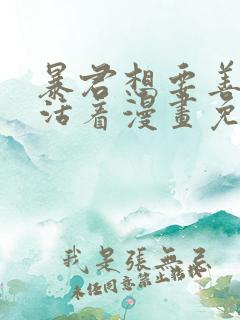 暴君想要善
活着漫畫免
我是張無忌
未经同意禁止转载